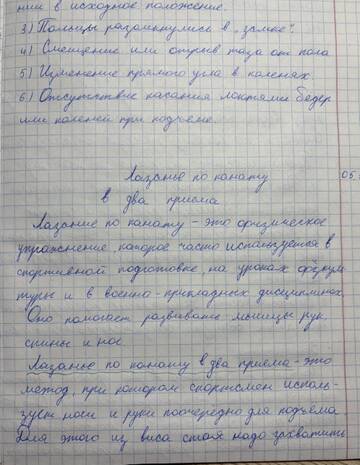 нии в исходное положение.
3) Пальцы разомкнулись в "замке".
4) Смещение или отрыв таза от пола
5) Изменение прямого угла в коленях.
6) Отсутствие касания локтями бедер
или коленей при подъеме.
Лазанье по канату
05
в два приема
Лазание по канату - это физическое
упражнение, которое часто используется в
спортивной подготовке, на уроках физкуль
туры и в военно-прикладных дисциплинах.
Оно помогает развивать мышцы рук
спины и ног
Лазанье по канату в два приема - это
метод, при котором спортсмен исполь-
зует ноги и руки поочередно для подъема
Для этого из виса стоя надо захватить